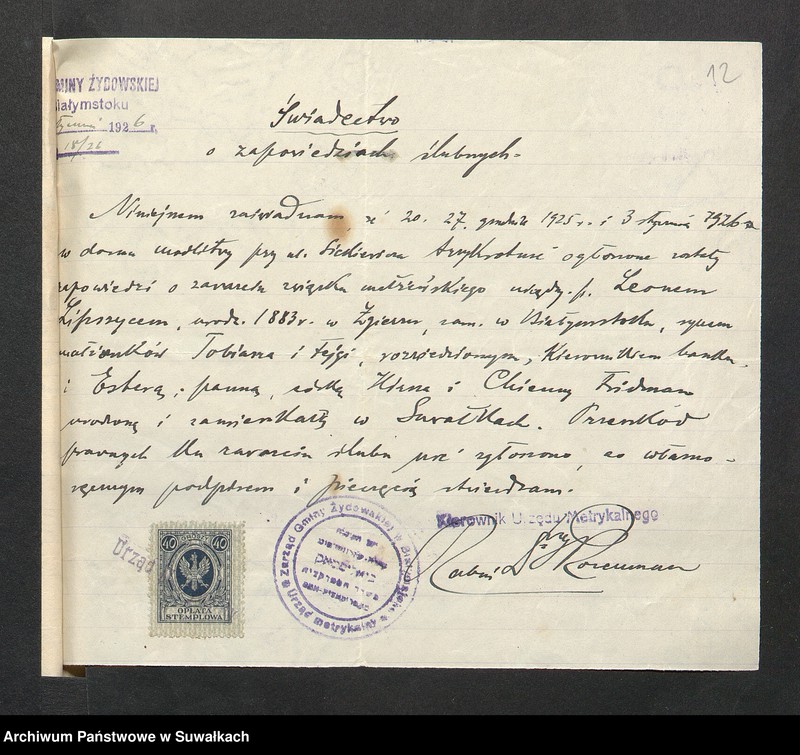 12
GMINY ŻYDOWSKIEJ
Białymstoku
1926 r.
18/26
Świadectwo
o zapowiedziach ślubnych.
Niniejszem zaświadczam, iż 20. 27. grudnia 1925 r. i 3 stycznia 1926 r.
w domu modlitwy przy ul. ogłoszone zostały
zapowiedzi o zawarciu związku małżeńskiego między p. Leonem
Lipszycem, urodz. 1883 r. w Zgierzu, zam. w Białymstoku, synem
małżonków Tobiasza i Fejgi, rozwiedzionym, Kierownikiem banku
i Esterą, panną, córką i Fridman
urodzoną i zamieszkałą w Suwałkach. Przeszkód
prawnych dla zawarcia ślubu nie zgłoszono, co własno-
ręcznym podpisem i pieczęcią stwierdzam.
Kierownik Urzędu Metrykalnego
Rabin Dr Rozenman
Urząd
40 40
OPŁATA
STEMPLOWA
Zarząd Gminy Żydowskiej w Białymstoku
Urząd metrykalny
Archiwum Państwowe w Suwałkach